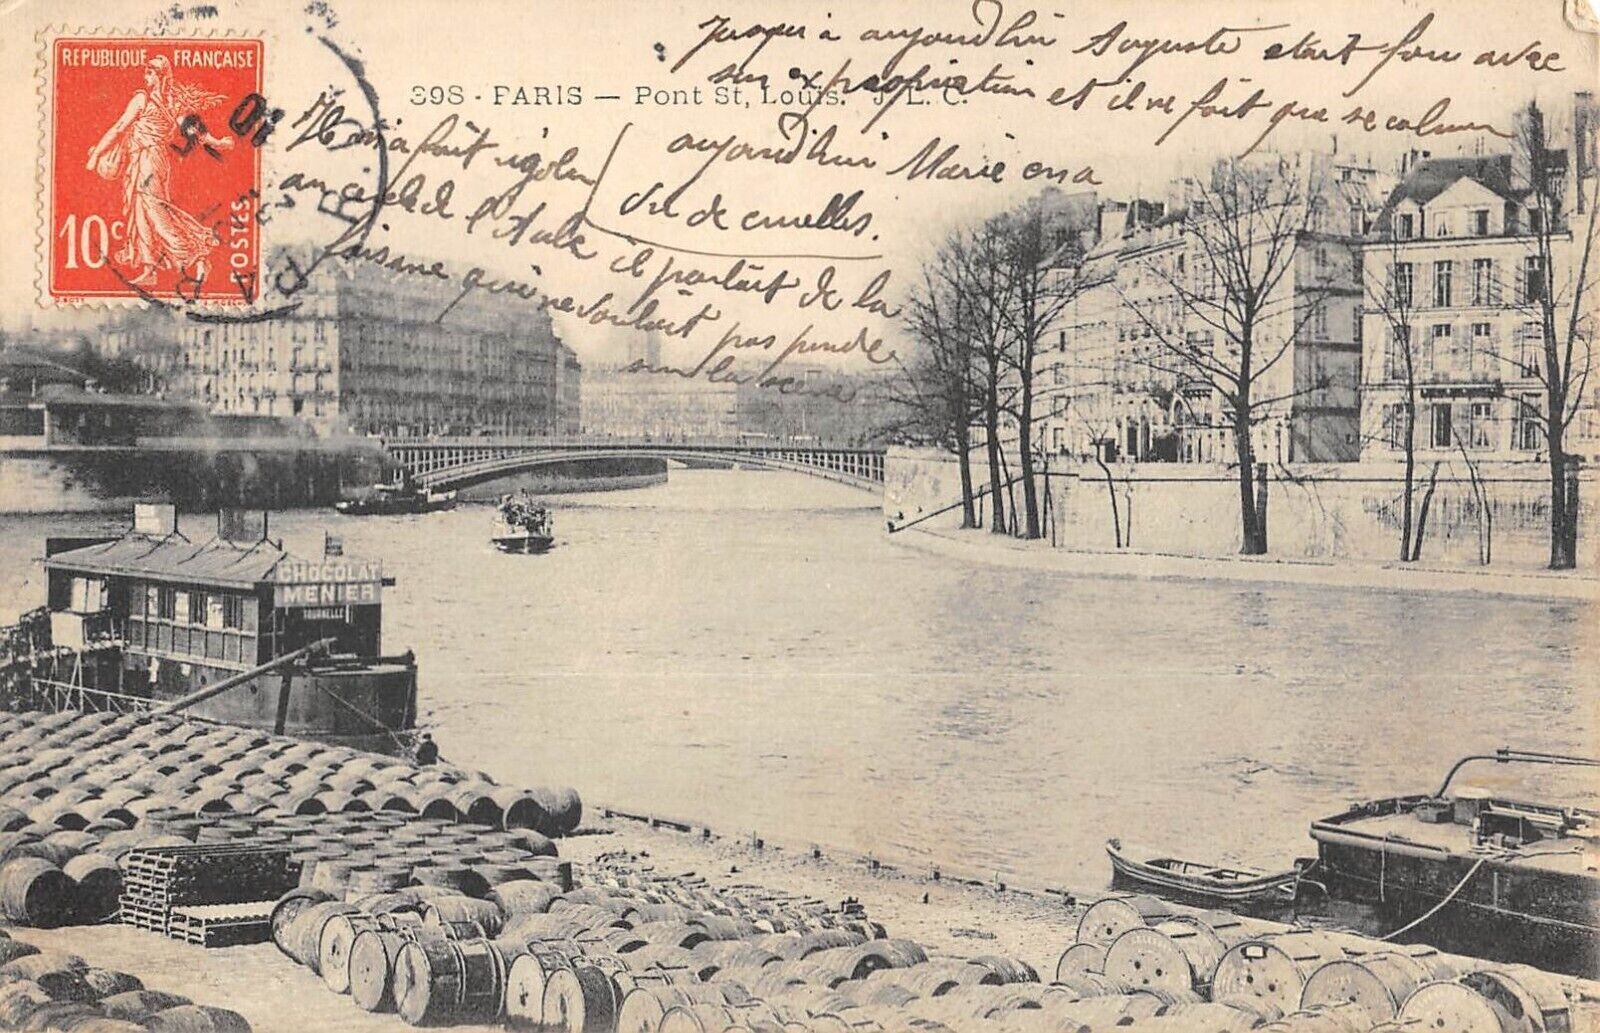 REPUBLIQUE FRANÇAISE
10c
POSTES
398 - PARIS — Pont St, Louis. J. L. C.
Jusqu'à aujourdhui Auguste etait fou avec
son expropriation et il ne fait que se calmer
aujourdhui Marie en a
de cruelles.
Il m'a fait rigoler
au de l'Aube il partait de la
qui ne voulait pas
sur la
CHOCOLAT
MENIER
TOURNELLE